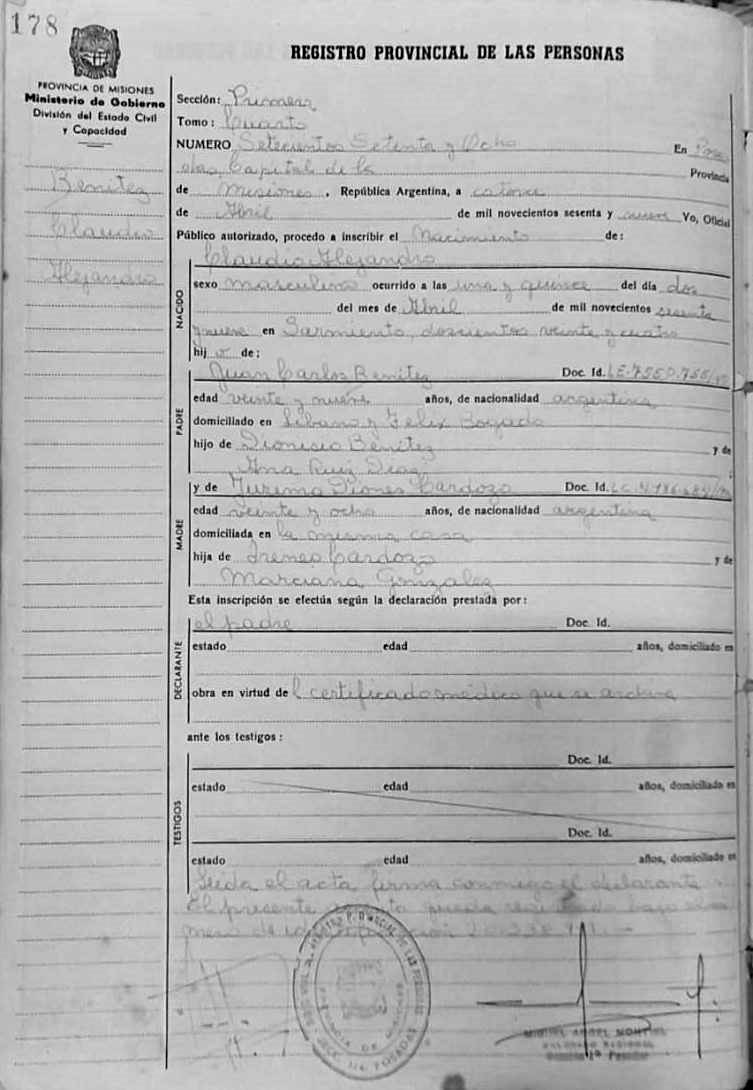 178
REGISTRO PROVINCIAL DE LAS PERSONAS
PROVINCIA DE MISIONES
Ministerio de Gobierno
División del Estado Civil
y Capacidad
Benitez
Claudio
Alejandro
Sección: Primera
Tomo: Cuarto
NUMERO Setecientos Setenta y Ocho En Posa
das, Capital de la Provincia
de Misiones, República Argentina, a catorce
de Abril de mil novecientos sesenta y nueve Yo, Oficial
Público autorizado, procedo a inscribir el Nacimiento de:
NACIDO
Claudio Alejandro
sexo masculino ocurrido a las una y quince del día dos
del mes de Abril de mil novecientos sesenta
y nueve en Sarmiento, doscientos veinte y cuatro
hijo de:
PADRE
Juan Carlos Benitez Doc. Id. LE-7.550.755
edad veinte y nueve años, de nacionalidad argentina
domiciliado en Libano y Felix Bogado
hijo de Dionicio Benitez y de
Ana Ruiz Diaz
MADRE
y de Jurema Diones Cardozo Doc. Id. LC
edad veinte y ocho años, de nacionalidad argentina
domiciliada en la misma casa
hija de Ireneo Cardozo y de
Marciana Gonzalez
Esta inscripción se efectúa según la declaración prestada por:
DECLARANTE
el padre Doc. Id.
estado edad años, domiciliado en
obra en virtud del certificado médico que se archiva
ante los testigos:
TESTIGOS
Doc. Id.
estado edad años, domiciliado en
Doc. Id.
estado edad años, domiciliado en
Leída el acta firma conmigo el declarante
El presente queda registrado bajo el nú
mero de
PROVINCIA DE MISIONES
SECC. 1ra POSADAS
MIGUEL ANGEL
DELEGADO REGIONAL